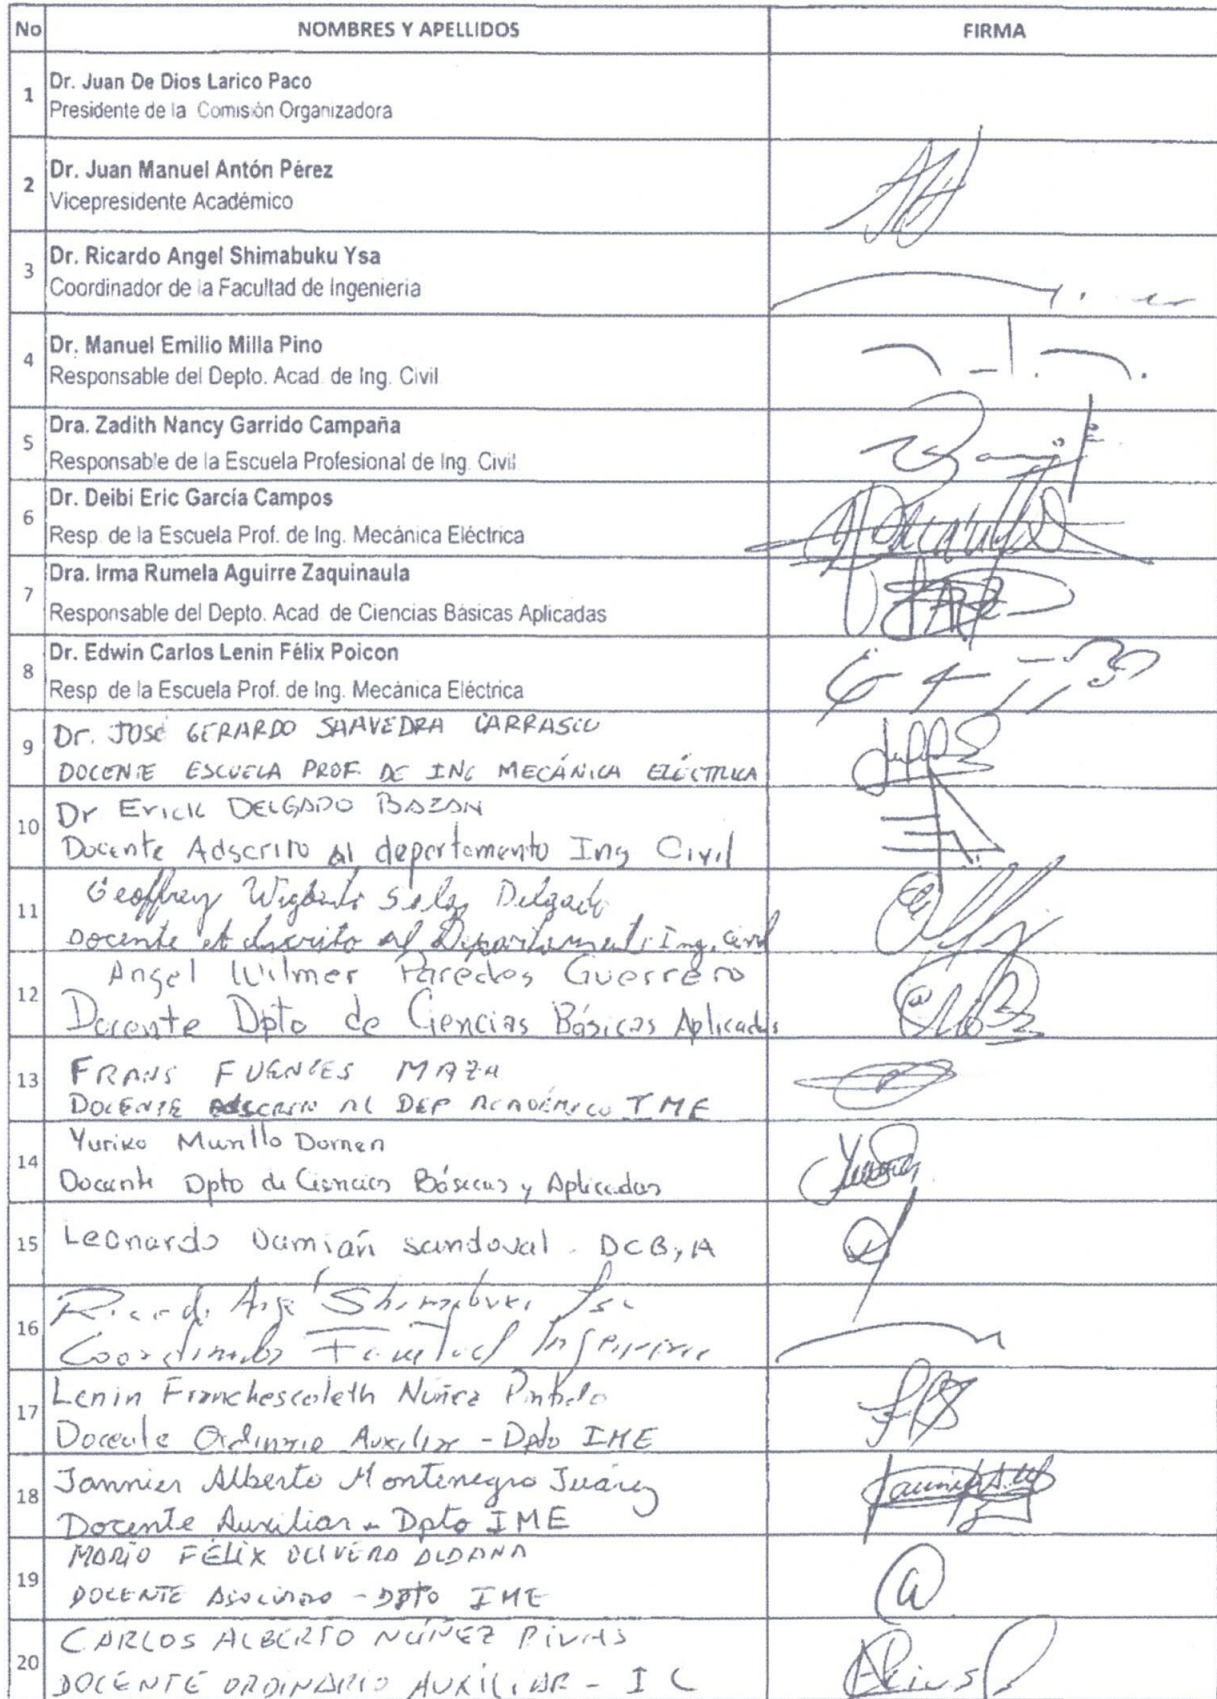 No NOMBRES Y APELLIDOS FIRMA
1 Dr. Juan De Dios Larico Paco
Presidente de la Comisión Organizadora
2 Dr. Juan Manuel Antón Pérez
Vicepresidente Académico
3 Dr. Ricardo Angel Shimabuku Ysa
Coordinador de la Facultad de Ingenieria
4 Dr. Manuel Emilio Milla Pino
Responsable del Depto. Acad. de Ing. Civil
5 Dra. Zadith Nancy Garrido Campaña
Responsable de la Escuela Profesional de Ing. Civil
6 Dr. Deibi Eric García Campos
Resp. de la Escuela Prof. de Ing. Mecánica Eléctrica
7 Dra. Irma Rumela Aguirre Zaquinaula
Responsable del Depto. Acad. de Ciencias Básicas Aplicadas
8 Dr. Edwin Carlos Lenin Félix Poicon
Resp. de la Escuela Prof. de Ing. Mecánica Eléctrica
9 Dr. JOSÉ GERARDO SAAVEDRA CARRASCO
DOCENTE ESCUELA PROF. DE ING MECÁNICA ELÉCTRICA
10 Dr Erick DELGADO BAZAN
Docente Adscrito al departamento Ing Civil
11 Geoffrey Wigberto Salas Delgado
Docente Adscrito al Departamento Ing. Civil
12 Angel Wilmer Paredes Guerrero
Docente Dpto de Ciencias Básicas Aplicadas
13 FRANS FUENTES MAZA
DOCENTE ADSCRITO AL DEP ACADÉMICO IME
14 Yuriko Murillo Domen
Docente Dpto de Ciencias Básicas y Aplicadas
15 Leonardo Damián Sandoval - DCByA
16 Ricardo Angel Shimabuku Ysa
Coordinador Facultad Ingenieria
17 Lenin Franchescoleth Núñez Pintado
Docente Ordinario Auxiliar - Dpto IME
18 Jannier Alberto Montenegro Juárez
Docente Auxiliar - Dpto IME
19 MARIO FÉLIX OLIVERA ALDANA
DOCENTE ASOCIADO - DPTO IME
20 CARLOS ALBERTO NÚÑEZ RIVAS
DOCENTE ORDINARIO AUXILIAR - IC